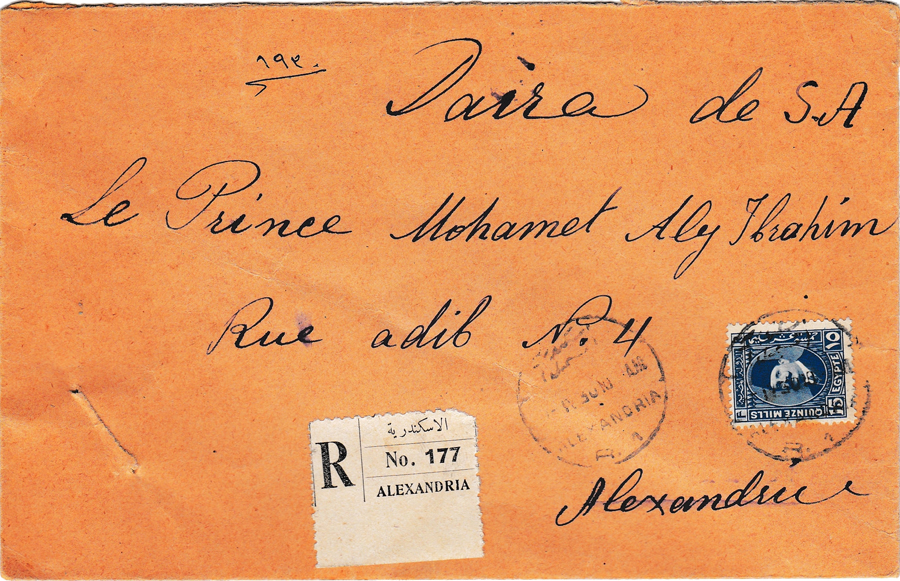 Daira de S.A
Le Prince Mohamet Aly Ibrahim
Rue adib No. 4
Alexandrie
R
الاسكندرية
No. 177
ALEXANDRIA
ALEXANDRIA
R. 1
١٥
15
EGYPTE
QUINZE MILLS
R. 1